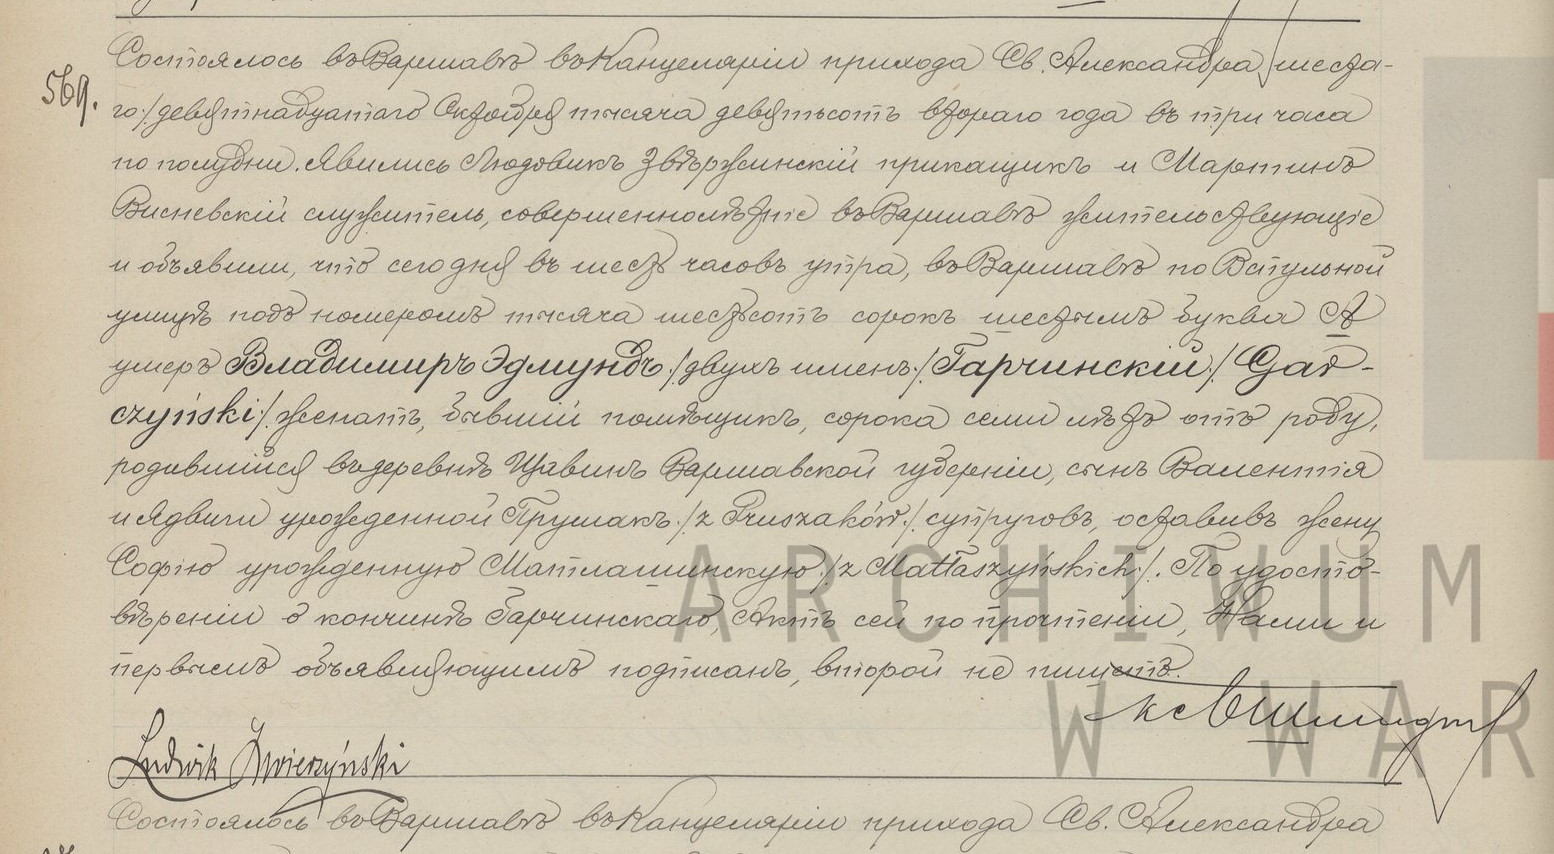 569.
Состоялось въ Варшавѣ въ Канцеляріи прихода Св. Александра шеста-
го /девятнадцатаго Октября тысяча девятьсотъ втораго года въ три часа
по полудни. Явились Людовикъ Звѣржинскій прикащикъ и Мартинъ
Висневскій служитель, совершеннолѣтніе въ Варшавѣ жительствующіе
и объявили, что сегодня въ шесть часовъ утра, въ Варшавѣ по Вспульной
улицѣ подъ номеромъ тысяча шестьсотъ сорокъ шестымъ буква А
умеръ Владимиръ Эдмундъ /двухъ именъ/ Гарчинскій / Gar-
czyński/ женатъ, бывшій помѣщикъ, сорока семи лѣтъ отъ роду,
родившійся въ деревнѣ Щавинъ Варшавской губерніи, сынъ Валентія
и Ядвиги урожденной Прушакъ /z Pruszaków/ супруговъ, оставивъ жену
Софію урожденную Матлашинскую /z Matłaszyńskich/. По удосто-
вѣреніи о кончинѣ Гарчинскаго, Актъ сей по прочтеніи, Нами и
первымъ объявляющимъ подписанъ, второй не пишетъ.
Ludwik Zwierzyński
Состоялось въ Варшавѣ въ Канцеляріи прихода Св. Александра
ARCHIWUM
W WAR